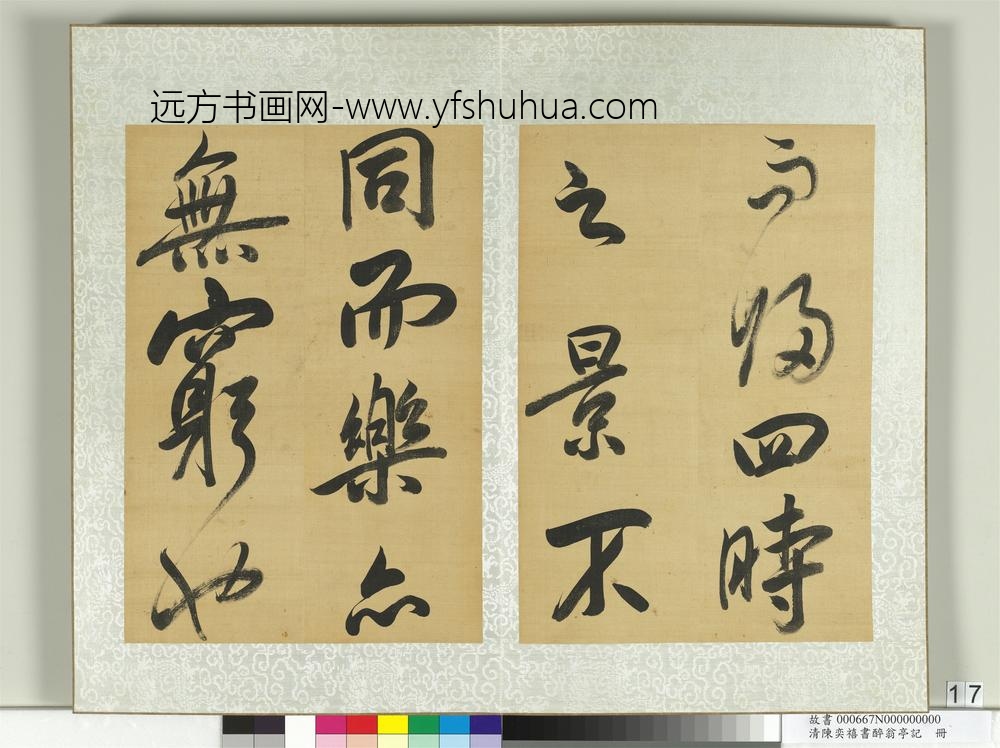 远方书画网-www.yfshuhua.com
而歸四時
之景不
同而樂亦
無窮也
17
故書 000667N000000000
清陳奕禧書醉翁亭記 冊